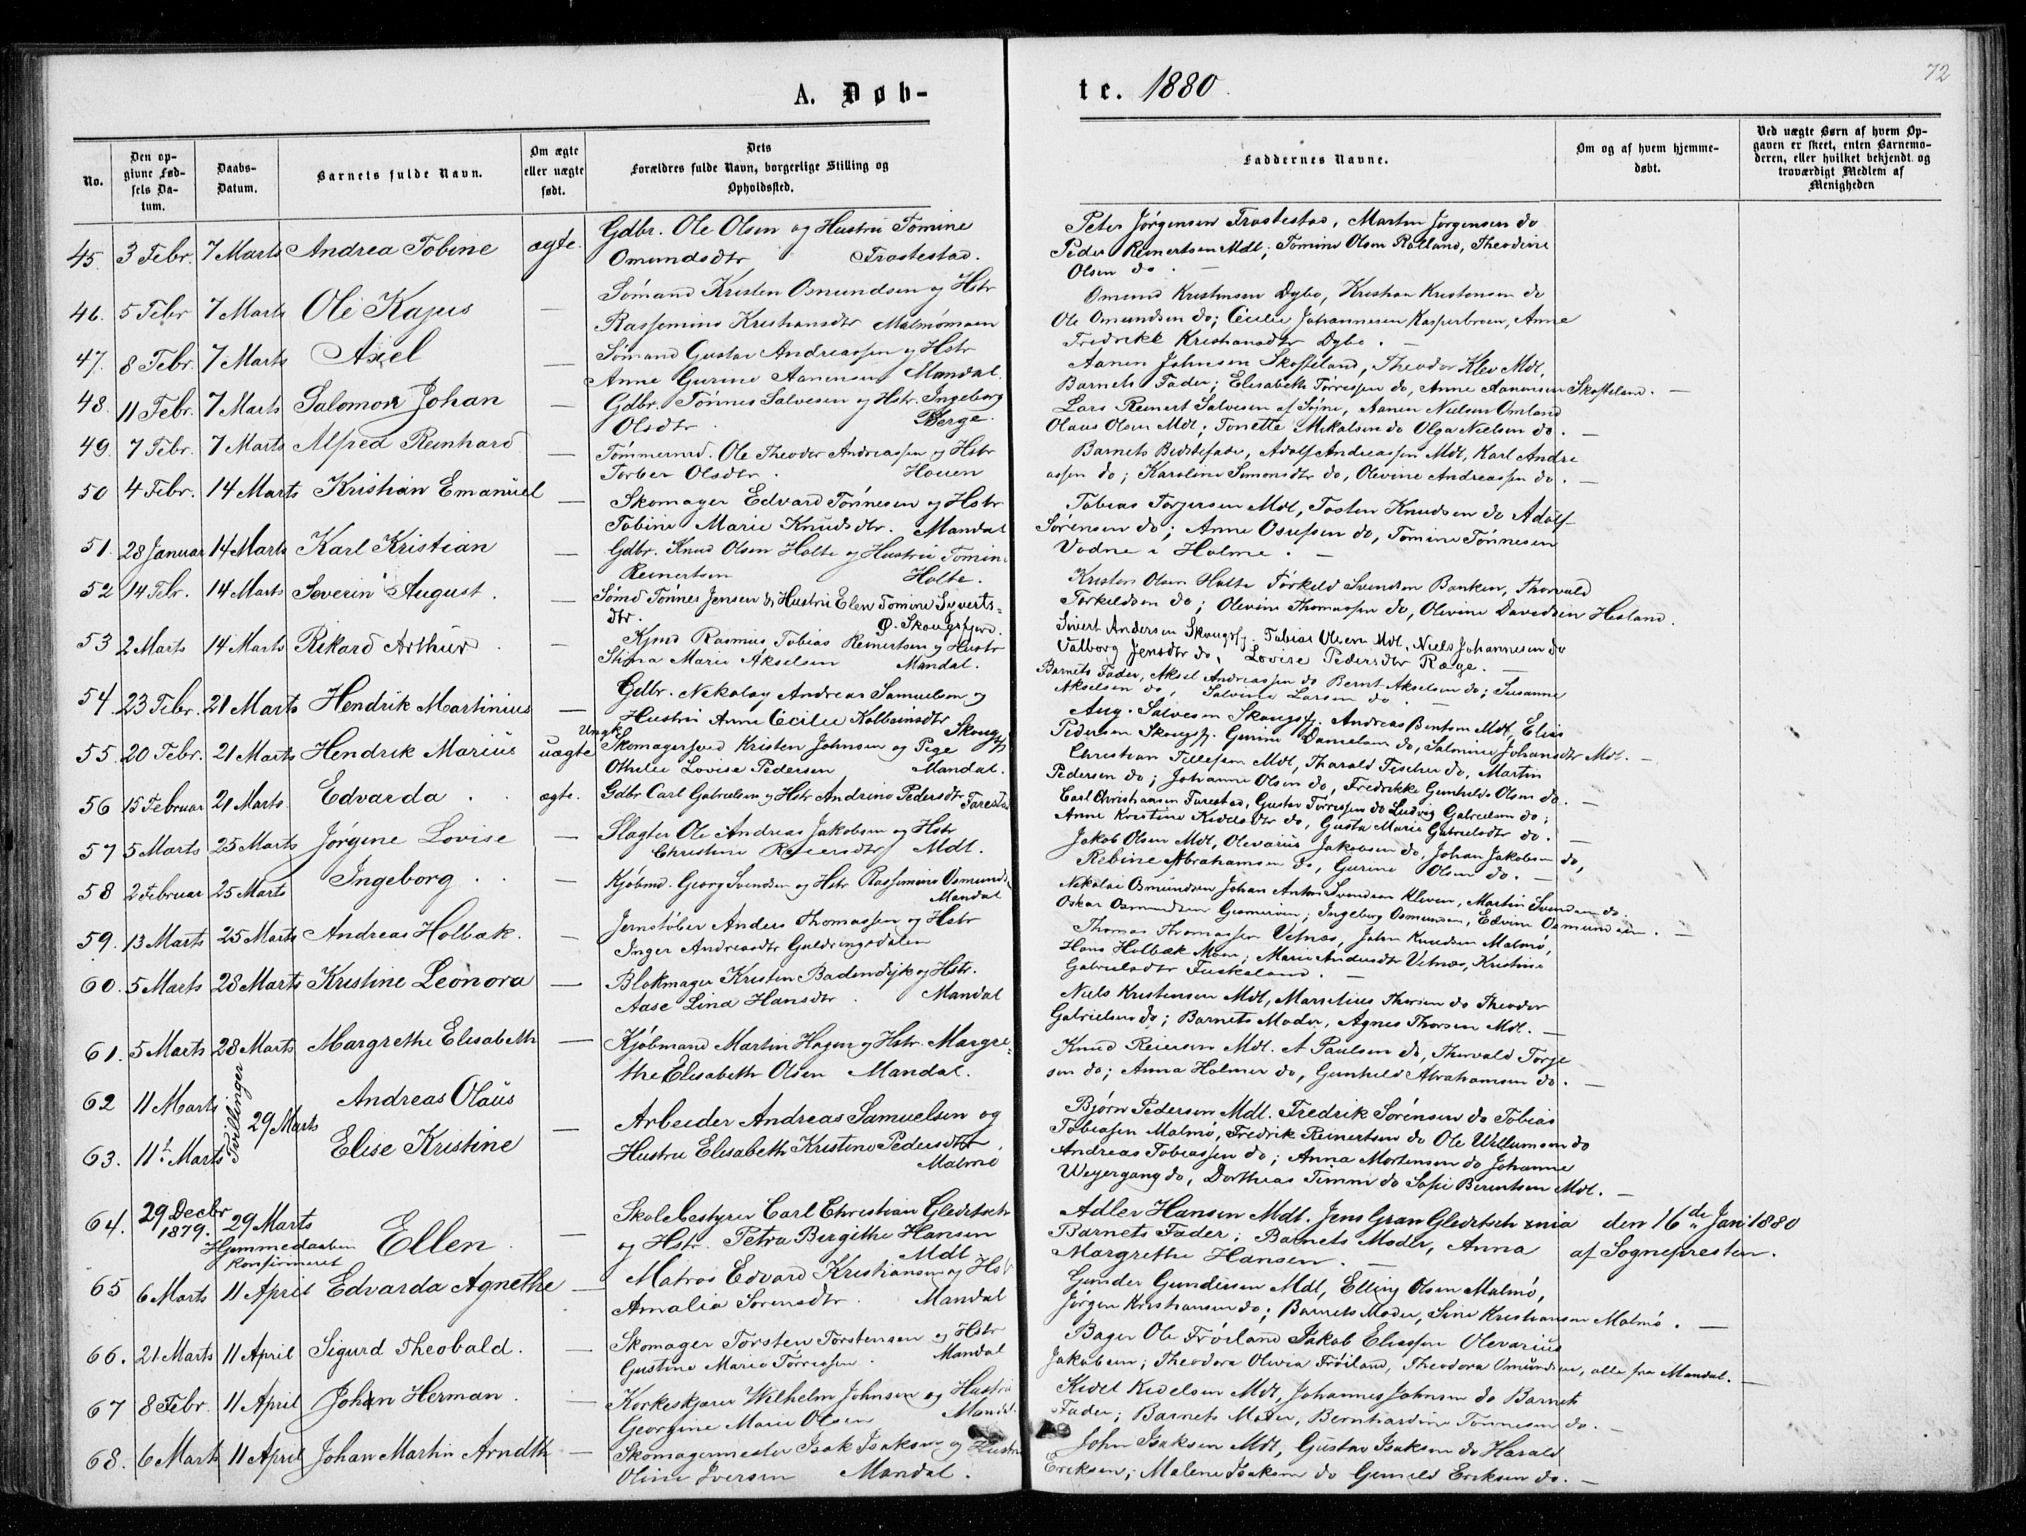 72
A. Døb-
te. 1880
No.
Den opgivne Fødsels Datum.
Daabs-Datum.
Barnets fulde Navn.
Om ægte eller uægte født.
Dets Forældres fulde Navn, borgerlige Stilling og Opholdssted.
Faddernes Navne.
Om og af hvem hjemmedøbt.
Ved uægte Børn af hvem Opgaven er skeet, enten Barnemoderen, eller hvilket bekjendt og troværdigt Medlem af Menigheden
45. 3 Febr. 7 Marts Andrea Tobine ægte. Gdbr. Ole Olsen og Hustru Tomine
Omundsdtr Frostestad.
Peter Jørgensen Frostestad, Martin Jørgensen do
Peder Reinertsen Mdl; Tomine Olsen Rolland, Theodine
Olsen do. —
46. 5 Febr 7 Marts Ole Kajus — Sømand Kristen Osmundsen og Hstr
Rassemine Kristiansdtr Malmømoen
Omund Kristensen Dybo, Kristian Kristensen do
Ole Omundsen do; Cecilie Johannesen Kasperbroen, Anne
Fredrikke Kristiansdtr Dybo. —
47. 8 Febr. 7 Marts Axel — Sømand Gustav Andreassen og Hstr
Anne Gurine Aanensen Mandal.
Aanen Johnsen Skofteland, Theodor Klev Mdl,
Barnets Fader; Elisabeth Tørressen do, Anne Aanensen Skofteland. —
48. 11 Febr. 7 Marts Salomon Johan — Gdbr. Tønnes Salvesen og Hstr. Ingeborg
Olsdtr. Berge.
Lars Reinert Salvesen af Søgne, Aanen Nielsen Omland
Olaus Olsen Mdl; Tonette Mikalsen do Olga Nielsen do. —
49. 7 Febr. 7 Marts Alfred Reinhard — Tømmermd. Ole Theodor Andreassen og Hstr
Torber Olsdtr. Houen
Barnets Bedstefader, Adolf Andreassen Mdl, Karl Andre
assen do; Karoline Simonsdtr do, Olevine Andreassen do. —
50 4 Febr. 14 Marts Kristian Emanuel — Skomager Edvard Tønnesen og Hstr
Tobine Marie Knudsdtr. Mandal
Tobias Torjersen Mdl, Tosten Knudsen do Adolf
Sørensen do; Anne Osufsen do, Tomine Tønnesen
Vodne i Holme. —
51. 28 Januar 14 Marts Karl Kristian — Gdbr. Knud Olsen Holte og Hustru Tomine
Reinertsen Holte.
Kristen Olsen Holte Tørkeld Svendsen Banken, Thorvald
Torkeldsen do; Olevine Thomassen do, Olevine Davidsen Hesland.
52 14 Febr. 14 Marts Severin August. — Sømd Tønnes Jensen & Hustru Elen Tomine Syverts-
dtr. Ø. Skougsfjord.
Sivert Andersen Skougsfj. Tobias Olsen Mdl, Niels Johannesen do
Valborg Jensdtr do, Lovise Pedersdtr Ræge. —
53 2 Marts 14 Marts Rikard Arthur. — Kjmd Rasmus Tobias Reinertsen og Hustr
Stina Marie Akselsen Mandal.
Barnets Fader, Aksel Andreassen do Bernt Akselsen do; Susanne
Akselsen do, Salvine Larsen do. —
54. 23 Febr. 21 Marts Hendrik Martinius — Gdbr. Nekolay Andreas Samuelsen og
Hustru Anne Cecilie Kolbeinsdtr Skougsfj
Aug. Salvesen Skougsfj. Andreas Bentsen Mdl, Elias
Pedersen Skougsfj. Gurine Danielsen do, Salmine Johansdtr Mdl. —
55. 20 Febr. 21 Marts Hendrik Marius uægte Ungk. Skomagersvend Kristen Johnsen og Pige
Othilie Lovise Pedersen Mandal.
Christian Tillefsen Mdl, Tharald Fischer do, Martin
Pedersen do; Johanne Olsen do, Fredrikke Gunhilde Olsen do. —
56 15 Februar 21 Marts. Edvarda. ægte. Gdbr Carl Gabrielsen og Hstr Andrine Pedersdtr Farestad
Carl Christiansen Farestad, Gustav Tørressen do Ludvig Gabrielsen do;
Anne Kristine Kittelsdtr do, Gusta Marie Gabrielsdtr do. —
57 5 Marts 25 Marts Jørgine Lovise — Slagter Ole Andreas Jakobsen og Hstr
Christine Reiersdtr Mdl.
Jakob Olsen Mdl, Olevarius Jakobsen do, Johan Jakobsen do,
Rebine Abrahamsen do, Gurine Olsen do. —
58 2 Februar 25 Marts Ingeborg. — Kjøbmd. Georg Svendsen og Hstr Rassemine Osmunds
Mandal
Nekolai Osmundsen Johan Anton Svendsen Kleven, Martin Svendsen do.
Oskar Osmundsen Gismerøen; Ingeborg Osmunsen, Edvine Osmundsen. —
59. 13 Marts 25 Marts Andreas Holbæk. — Jernstøber Anders Thomassen og Hstr
Inger Andreasdtr Guldregsdalen
Thomas Thomassen Vetnæs, John Knudsen Malmø,
Hans Holbæk Moen; Marie Andersdtr Vetnæs, Kristine
Gabrielsdtr Fuskeland. —
60. 5 Marts 28 Marts Kristine Leonora — Blokmager Kristen Badendyk og Hstr.
Aase Lina Hansdtr. Mandal
Niels Kristensen Mdl, Marselius Thorsen do Theodor
Gabrielsen do; Barnets Moder, Agnes Thorsen Mdl. —
61. 5 Marts 28 Marts Margrethe Elisabeth — Kjøbmand Martin Hagen og Hstr. Margre-
the Elisabeth Olsen Mandal.
Knud Reiersen Mdl. A Paulsen do, Thorvald Torge
sen do; Anna Holmer do, Gunhild Abrahamsen do. —
62 11 Marts Tvillinger 29 Marts Andreas Olaus
63. 11te Marts Elise Kristine — Arbeider Andreas Samuelsen og
Hustru Elisabeth Kristine Pedersdtr
Malmø
Bjørn Pedersen Mdl. Fredrik Sørensen do Tobias
Tobiassen Malmø, Fredrik Reinertsen do Ole Willumsen do
Andreas Tobiassen do; Anna Mortensen do Johanne
Weyergang do, Dorthea Timm do Sofie Berentsen Mdl. —
64. 29 Decbr 1879. 29 Marts Hjemmedaaben konfirmeret Ellen Skolebestyrer Carl Christian Gleditsch
og Hstr. Petra Bergithe Hansen
Mdl
Adler Hansen Mdl. Jens Gran Gleditsch xnia den 16de Jan 1880
Barnets Fader; Barnets Moder, Anna af Sognepresten.
Margrethe Hansen. —
65 6 Marts 11 April Edvarda Agnethe — Matros Edvard Kristiansen og Hstr
Amalia Sørensdtr. Mandal
Gunder Gundersen Mdl, Elling Olsen Malmø,
Jørgen Kristiansen do; Barnets Moder, Sine Kristiansen Malmø. —
66. 21 Marts 11 April Sigurd Theobald. — Skomager Torsten Torstensen og Hstr
Gustine Marie Tørressen. Mandal
Bager Ole Frøiland Jakob Eliassen Olevarius
Jakobsen; Theodora Olivia Frøiland, Theodora Omundsen, alle fra Mandal. —
67 8 Febr. 11 April Johan Herman. — Korkeskjærer Wilhelm Johnsen og Hustru
Georgine Marie Olsen Mandal.
Kidel Kidelsen Mdl, Johannes Johnsen do Barnets
Fader; Barnets Moder, Bernhardine Tønnesen do. —
68. 6 Marts 11 April Johan Martin Arndth — Skomagermester Isak Isaksen og Hustru
Oline Iversen Mandal.
John Isaksen Mdl, Gustav Isaksen do Harald
Eriksen; Malene Isaksen do Gunild Eriksen do. —